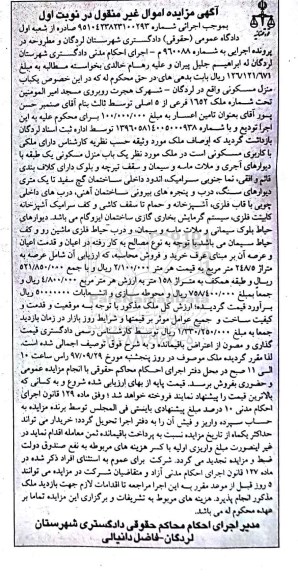 آگهی مزایده اموال غیر منقول در نوبت اول
بموجب اجرائی شماره ۹۵۱۰۴۲۳۸۲۳۱۰۰۲۹۳ صادره از شعبه اول
دادگاه عمومی (حقوقی) دادگستری شهرستان لردگان و مطروحه در
پرونده اجرایی به شماره ۹۶۰۰۸۸ - اجرای احکام مدنی دادگستری شهرستان
لردگان له ابراهیم جلیل پیران و علیه رهام خالدی بخواسته مطالبه به مبلغ
۱۲۶/۱۲۱/۶۷۱ ریال بابت بدهی های در حق محکوم له که در این خصوص یکباب
منزل مسکونی واقع در لردگان - شهرک هجرت روبروی مسجد امیر المومنین
تحت شماره ملک ۱۶۵۲ فرعی از ۵ اصلی توسط ثالث بنام آقای صنمبر حسن
پور آقای بعنوان تامین اعسار به مبلغ ۱۰۰/۰۰۰/۰۰۰ ریال برای محکوم علیه به این
اجرا تودیع و با شماره ۱۳۹۶۰۵۸۱۴۰۰۵۰۰۰۹۳۸ توسط اداره ثبت اسناد لردگان
بازداشت گردید که اوصاف ملک مورد وثیقه حسب نظریه کارشناس دارای ملکی
با کاربری مسکونی است در ملک مورد نظر یک باب منزل مسکونی یک طبقه با
دیوارهای آجری و ملات ماسه و سیمان و سقف تیرچه و بلوک دارای کلاف بندی
قائم و افقی، نمای جنوبی سرامیک، اندود داخلی ساختمان گچ سفید تا یک متری
دیوارهای سنگ، درب و پنجره های بیرونی ساختمان آهنی، درب های داخلی
چوبی با قاب فلزی، آشپزخانه و حمام تا سقف کاشی و کف سرامیک آشپزخانه
کابینت فلزی، سیستم گرمایش بخاری گازی ساختمان ایزوگام می باشد. دیوارهای
حیاط بلوک سیمانی و ملات ماسه و سیمان، و درب حیاط فلزی ماشین رو و کف
حیاط سیمان می باشد، با توجه به نوع مصالح به کار رفته در اعیان و قدمت اعیان
و عرصه آن بر مبنای عرف خرید و فروش محاسبه، که ارزیابی آن شامل عرصه به
متراژ ۲۴۸/۵ متر مربع به قیمت هر متر ۲/۱۰۰/۰۰۰ ریال و با جمع ۵۲۱/۸۵۰/۰۰۰
ریال و طبقه همکف به متراژ ۱۵۸ متر مربع به ارزش هر متر مربع ۴/۸۰۰/۰۰۰ ریال و
جمعاً بمبلغ ۷۵۸/۴۰۰/۰۰۰ ریال و محوطه سازی و انشعابات ۵۰۰۰۰۰۰۰ ریال
برآورد قیمت گردید؛ ارزش کل ملک مذکور با توجه به موقعیت و قدمت و
کیفیت ساخت و جمیع عوامل موثر بر قیمتها و شرایط روز بازار در زمان بازدید
جمعا به مبلغ ۱/۳۳۰/۲۵۰/۰۰۰ ریال توسط کارشناس رسمی دادگستری قیمت
گذاری و مصون از اعتراض باقیمانده و به شرح فوق توصیف اجمالی شده است.
لذا مقرر گردیده ملک موصوف در روز پنجشنبه مورخ ۹۷/۰۹/۲۹ راس ساعت ۱۰
الی ۱۱ صبح در محل دفتر اجرای احکام محاکم حقوقی با انجام مزایده عمومی
و حضوری بفروش برسد. قیمت پایه از بهای ارزیابی شده شروع و به کسانی که
بالاترین قیمت را پیشنهاد نمایند فروخته خواهد شد ؛ وفق ماده ۱۲۹ قانون اجرای
احکام مدنی ۱۰ درصد مبلغ پیشنهادی بایستی فی المجلس توسط برنده مزایده به
حساب سپرده واریز و فیش آن را به دفتر اجرا تحویل گردد؛ خریدار می تواند
حداکثر یکماه از تاریخ مزایده نسبت به پرداخت باقیمانده ثمن معامله اقدام نماید در
غیر اینصورت مبلغ واریزی اولیه با کسر هزینه های مربوطه به نفع صندوق دولت
ضبط و مزایده تجدید می گردد. شرکت برای عموم به استثنای افراد ذکر شده در
ماده ۱۲۷ قانون اجرای احکام مدنی آزاد و متقاضیان شـرکت در مزایده می توانند
۵ روز قبل از موعد مقرر به این اجرا مراجعه تا اقدامات لازم جهت بازدید ملک
مذکور انجام پذیرد. هزینه های مربوط به تشریفات و برگزاری این مزایده تماما بر
عهده محکوم له می باشد.
مدیر اجرای احکام محاکم حقوقی دادگستری شهرستان
لردگان-فاضل دانیالی